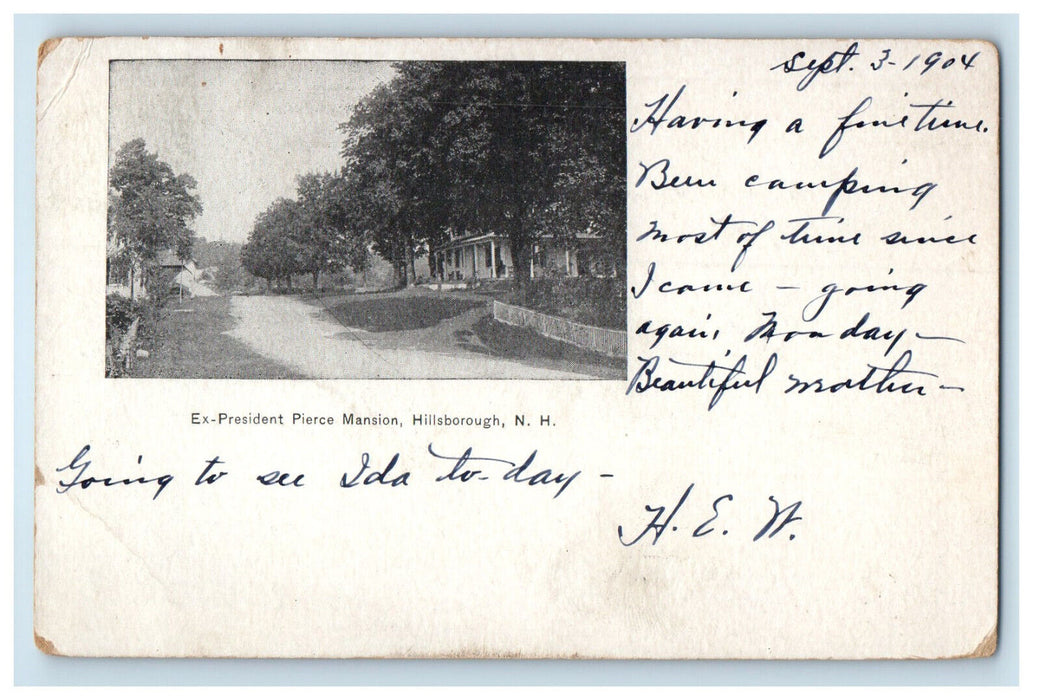 Sept. 3 - 1904
Having a fine time.
Been camping
most of time since
I came - going
again, Monday -
Beautiful weather -
Ex-President Pierce Mansion, Hillsborough, N. H.
Going to see Ida to-day -
H. E. W.